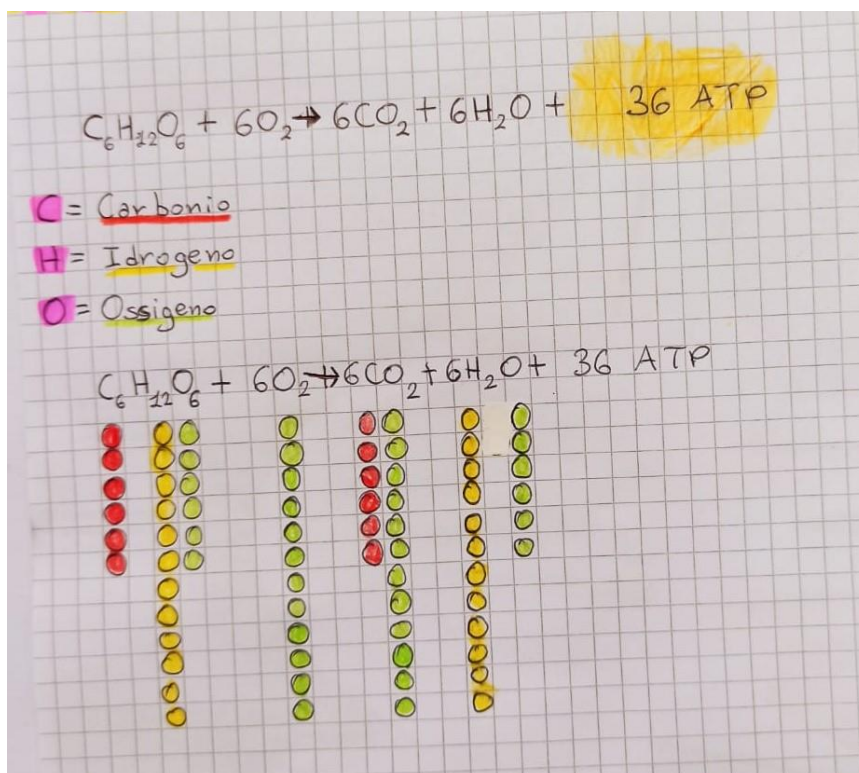 C₆H₁₂O₆ + 6O₂ → 6CO₂ + 6H₂O + 36 ATP
C = Carbonio
H = Idrogeno
O = Ossigeno
C₆H₁₂O₆ + 6O₂ → 6CO₂ + 6H₂O + 36 ATP